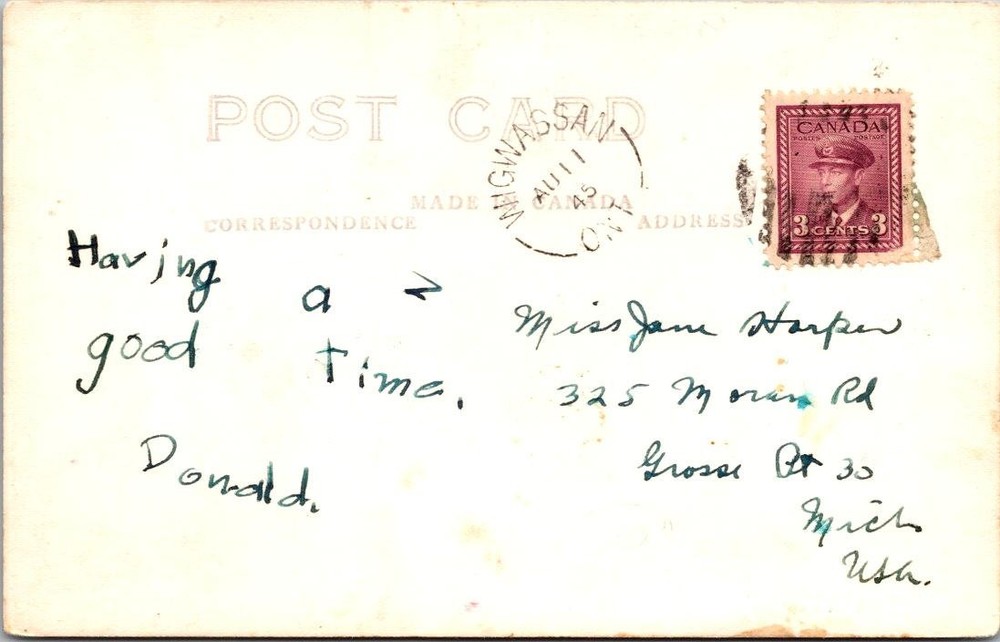 POST CARD
MADE IN CANADA
CORRESPONDENCE
ADDRESS
WIGWASSAN
AU 11
45
ONT
CANADA
POSTES POSTAGE
3 CENTS 3
Having a
good time.
Donald.
Miss Jane Harper
325 Moran Rd
Grosse Pt 30
Mich
USA.